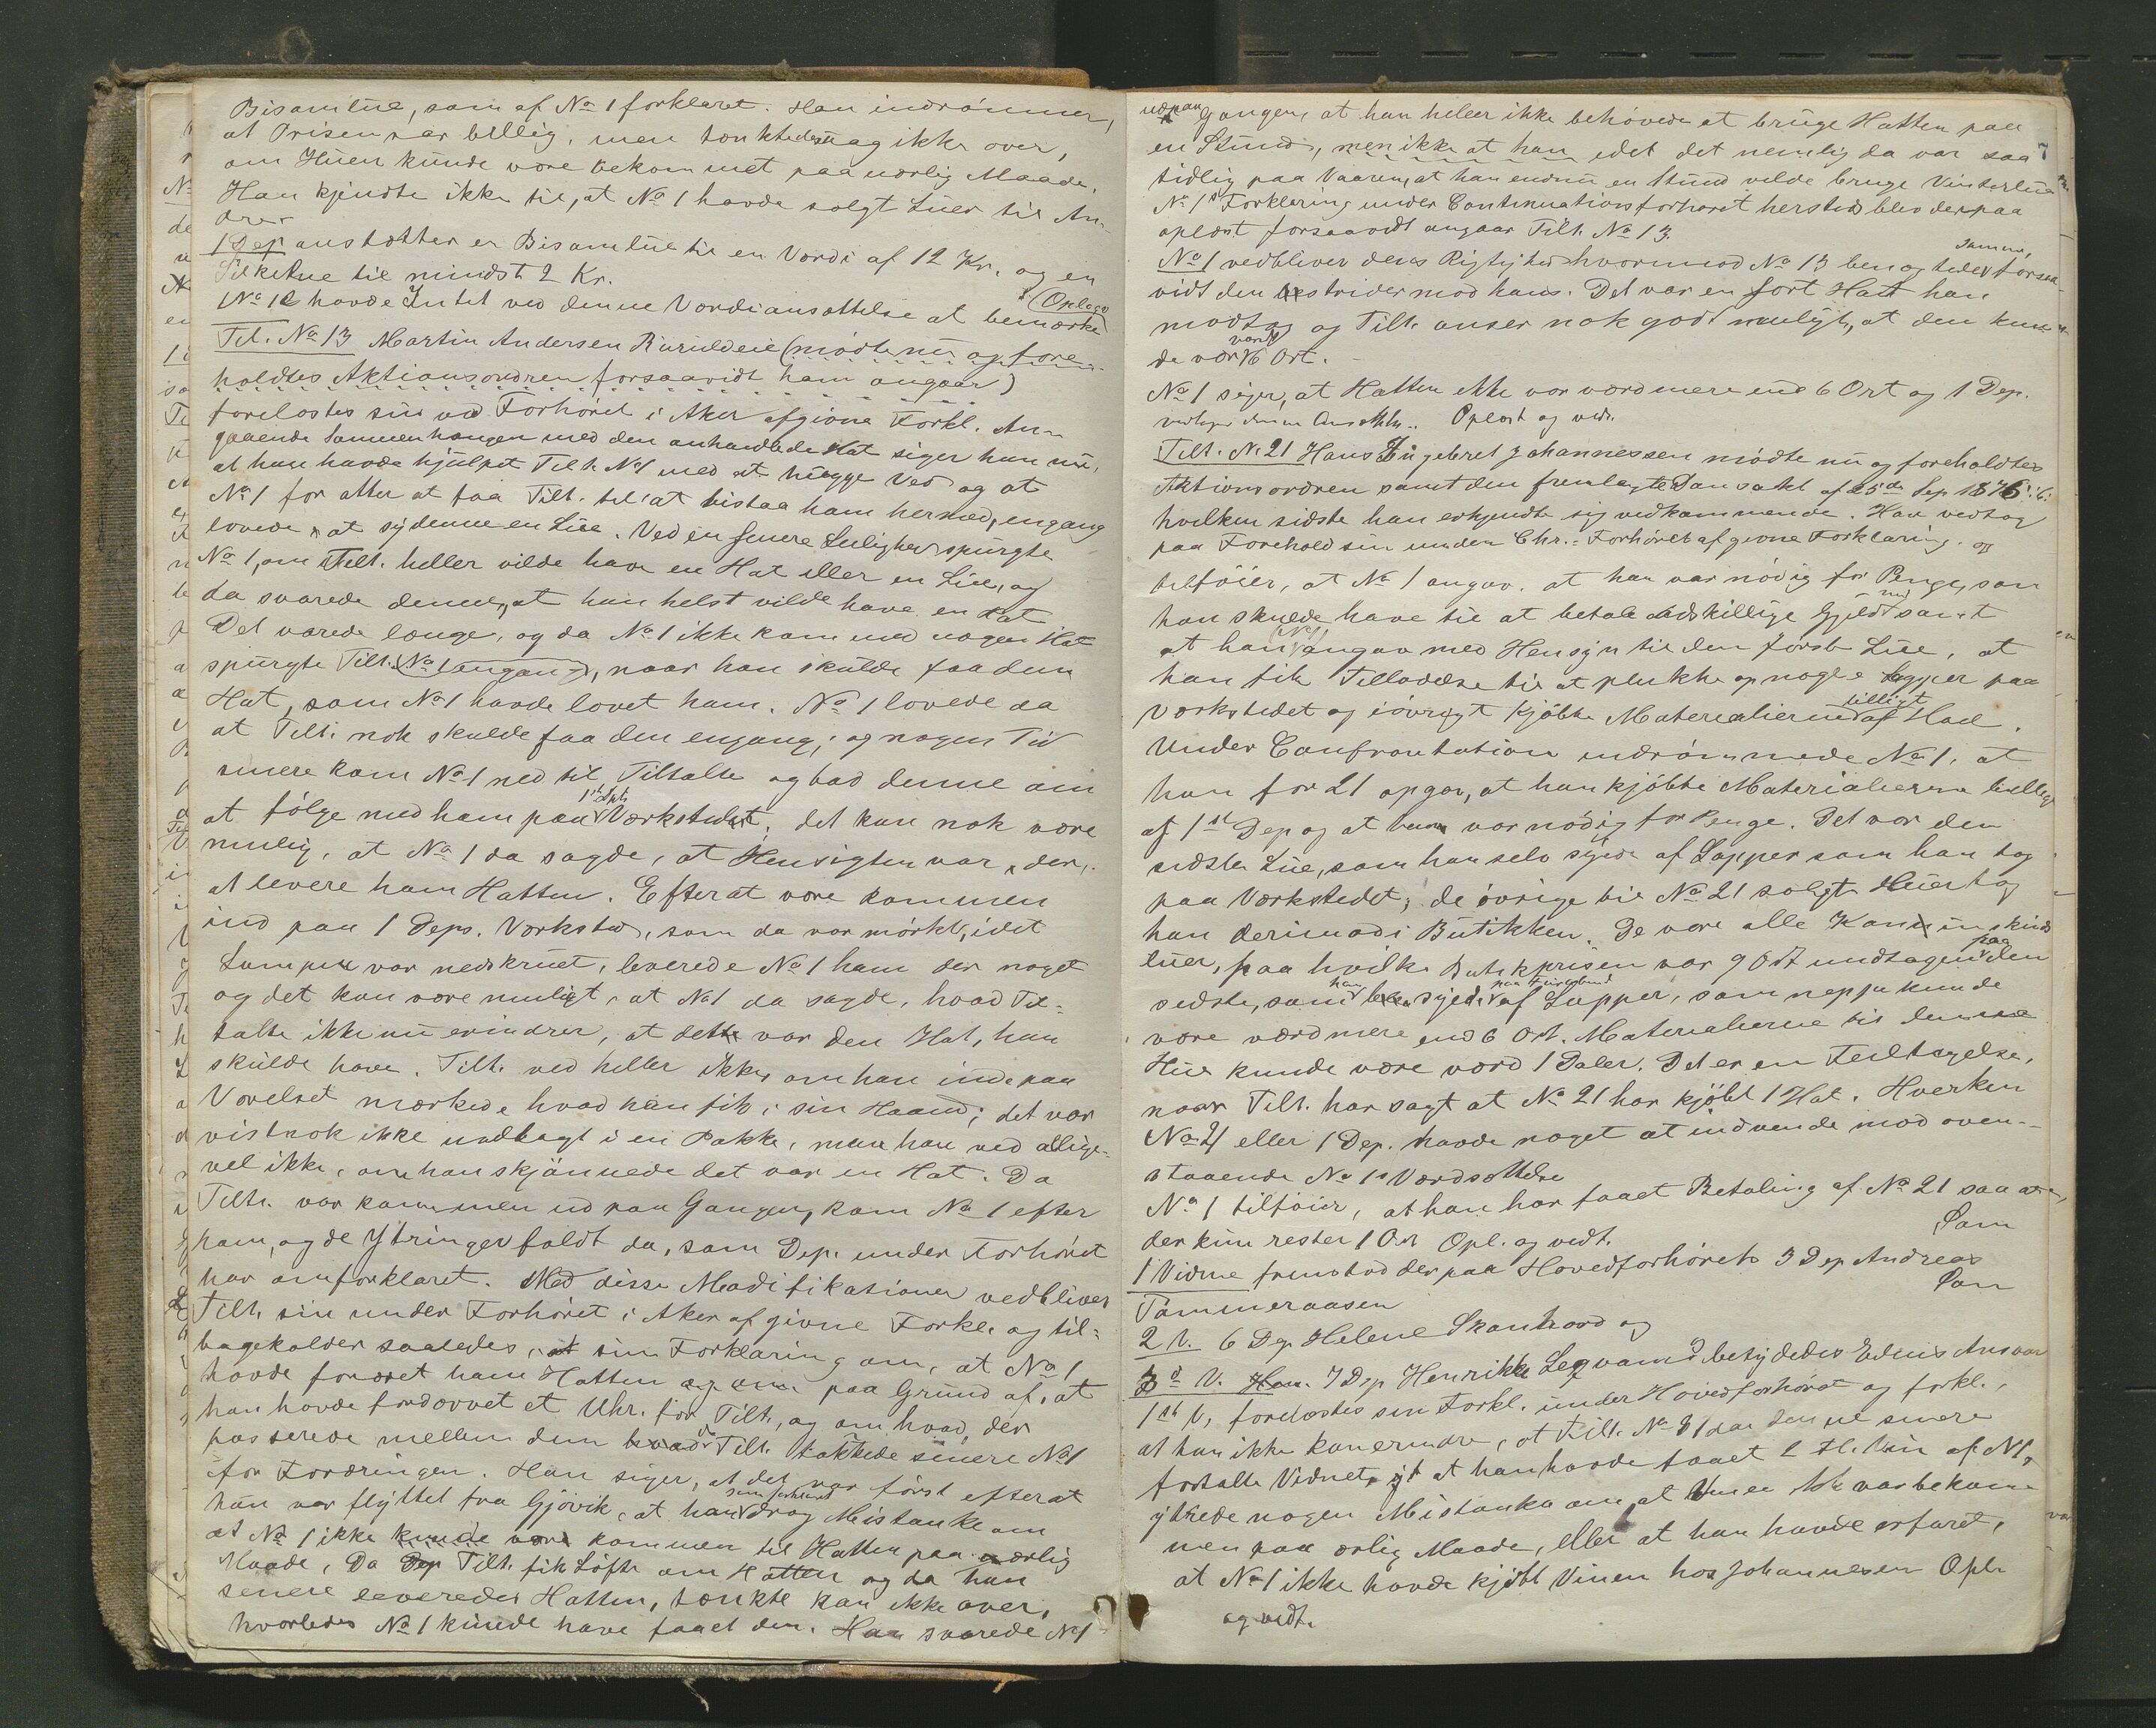 Bisamlue, som af No 1 forklaret. Han indrømmer,
at Prisen var billig, men tænkte dog ikke over,
om Huen kunde være bekommet paa uærlig Maade.
Han kjendte ikke til, at No 1 havde solgt Luer til An-
dre.
1 Dep. ansætter en Bisamlue til en Værdi af 12 Kr. og en
Silkelue til mindst 2 Kr.
No 12 havde Intet ved denne Værdiansættelse at bemærke
Oplæst
Tilt. No 13 Martin Andersen Ruruldeie (mødte nu og fore-
holdtes Aktionsordren forsaavidt ham angaar)
forelæstes sin ved Forhøret i Aker afgivne Forkl. An-
gaaende Sammenhængen med den anhandlede Hat siger han nu,
at han havde hjulpet Tilt. No 1 med at hugge Ved og at
No 1 for atter at faa Tilt. til at bistaa ham hermed, engang
lovede at sy denne en Lue. Ved en senere Leilighed spurgte
No 1, om Tilt. heller vilde have en Hat eller en Lue, og
da svarede denne, at han helst vilde have en Hat
Det varede længe, og da No 1 ikke kom med nogen Hat
spurgte Tilt. No 1 engang, naar han skulde faa den
Hat, som No 1 havde lovet ham. No 1 lovede da
at Tilt. nok skulde faa den engang; og nogen Tid
senere kom No 1 ned til Tiltalte og bad denne om
at følge med ham paa 1st Dpts Værkstedet, det kan nok være
mulig, at No 1 da sagde, at Hensigten var, der,
at levere ham Hatten. Efterat være kommen
ind paa 1 Deps. Værksted, som da var mørkt, idet
Lampen var nedskruet, leverede No 1 ham der noget
og det kan være muligt, at No 1 da sagde, hvad Til-
talte ikke nu erindrer, at dette var den Hat, han
skulde have. Tilt. ved heller ikke, om han inde paa
Værelset mærkede hvad han fik i sin Haand; det var
vistnok ikke indlagt i en Pakke, men han ved allige-
vel ikke, om han skjønnede det var en Hat. Da
Tilt. var kommen ud paa Gangen, kom No 1 efter
ham, og de Ytringer faldt da, som Dep. under Forhøret
har omforklaret. Med disse Modifikationer vedbliver
Tilt. sin under Forhøret i Aker afgivne Forkl. og til-
bagekalder saaledes, at sin Forklaring om, at No 1
havde foræret ham Hatten og om paa Grund af, at
han havde fordærvet et Uhr for Tilt, og om hvad, der
passerede mellem dem hvad da Tilt. takkede senere No 1
for Foræringen. Han siger, at det var først efterat
han var flyttet fra Gjøvik, at han som forklaret drog Mistanke om
at No 1 ikke kunde være kommen til Hatten paa ærlig
Maade, Da Dep Tilt. fik Løfte om Hatten og da han
senere leveredes Hatten, tænkte han ikke over,
hvorledes No 1 kunde have faaet den. Han svarede No 1
udpaa Gangen, at han heller ikke behøvede at bruge Hatten paa
en Stund, men ikke at han idet det nemlig da var saa
7
tidlig paa Vaaren, at han endnu en Stund vilde bruge Vinterlue
No 1s Forklaring under Continuationsforhøret hersteds blev derpaa
oplæst forsaavidt angaar Tilt. No 13.
No 1 vedbliver dens Rigtighed hvorimod No 13 benegtede samme, forsaa-
vidt den strider mod hans. Det var en sort Hat han
modtog og Tilt. anser nok godt muligt, at den kun-
de være værd 6 Ort.
No 1 siger, at Hatten ikke var værd mere end 6 Ort og 1 Dep.
vedtager denne Ansættelse. Oplæst og vedt.
Tilt. No 21 Hans Ingebret Johannessen mødte nu og foreholdtes
Aktionsordren samt den fremlagte Daabsatt af 25de Sep 1876:
hvilken sidste han erkjendte sig vedkommende. Han vedtog
paa Forehold sin under Chr. Forhøret afgivne Forklaring. og
tilføier, at No 1 angav, at han var nødig for Penge, som
han skulde have til at betale adskillige Gjeld med samt
at han (No 1) angav med Hensyn til den første Lue, at
han fik Tilladelse til at plukke op nogle Lapper paa
Værkstedet og iøvrigt kjøbte Materialierne billigt af Hael.
Under Confrontation indrømmede No 1, at
han for 21 opgav, at han kjøbte Materialierne billigt
af 1st Dep og at han var nødig for Penge. Det var den
sidste Lue, som han selv syede af Lapper som han tog
paa Værkstedet; de øvrige til No 21 solgte Huer tog
han derimod i Butikken. De vare alle Kaninskinds
luer, paa hvilke Butikprisen var 9 Ort undtagen paa den
sidste, som han syede af Lapper, som neppe kunde
være værd mere end 6 Ort. Materialierne til denne
Hue kunde være værd 1 Daler. Det er en Feiltagelse,
naar Tilt. har sagt at No 21 har kjøbt 1 Hat. Hverken
No 21 eller 1 Dep. havde noget at indvende mod oven-
staaende No 1s Værdsættelse
No 1 tilføier, at han har faaet Betaling af No 21 saa at
der kun rester 1 Ort Opl. og vedt.
1 Vidne fremstod derpaa Hovedforhørets 3 Dep Andreas
Tømmeraasen
2 V. 6 Dep Helene Skonhord og
3d V. 7 Dep Henrikke betydedes Edens Ansvar
1st V. forelæstes sin Forkl. under Hovedforhøret og forkl.,
at han ikke kan erindre, at Tilt. No 81 da denne senere
fortalte Vidnet, at han havde faaet 2 Fl. Vin af N 1,
ytrede nogen Mistanke om, at Vinen ikke var bekom-
men paa ærlig Maade, eller at han havde erfaret,
at No 1 ikke havde kjøbt Vinen hos Johannesen Opl.
og vedt.